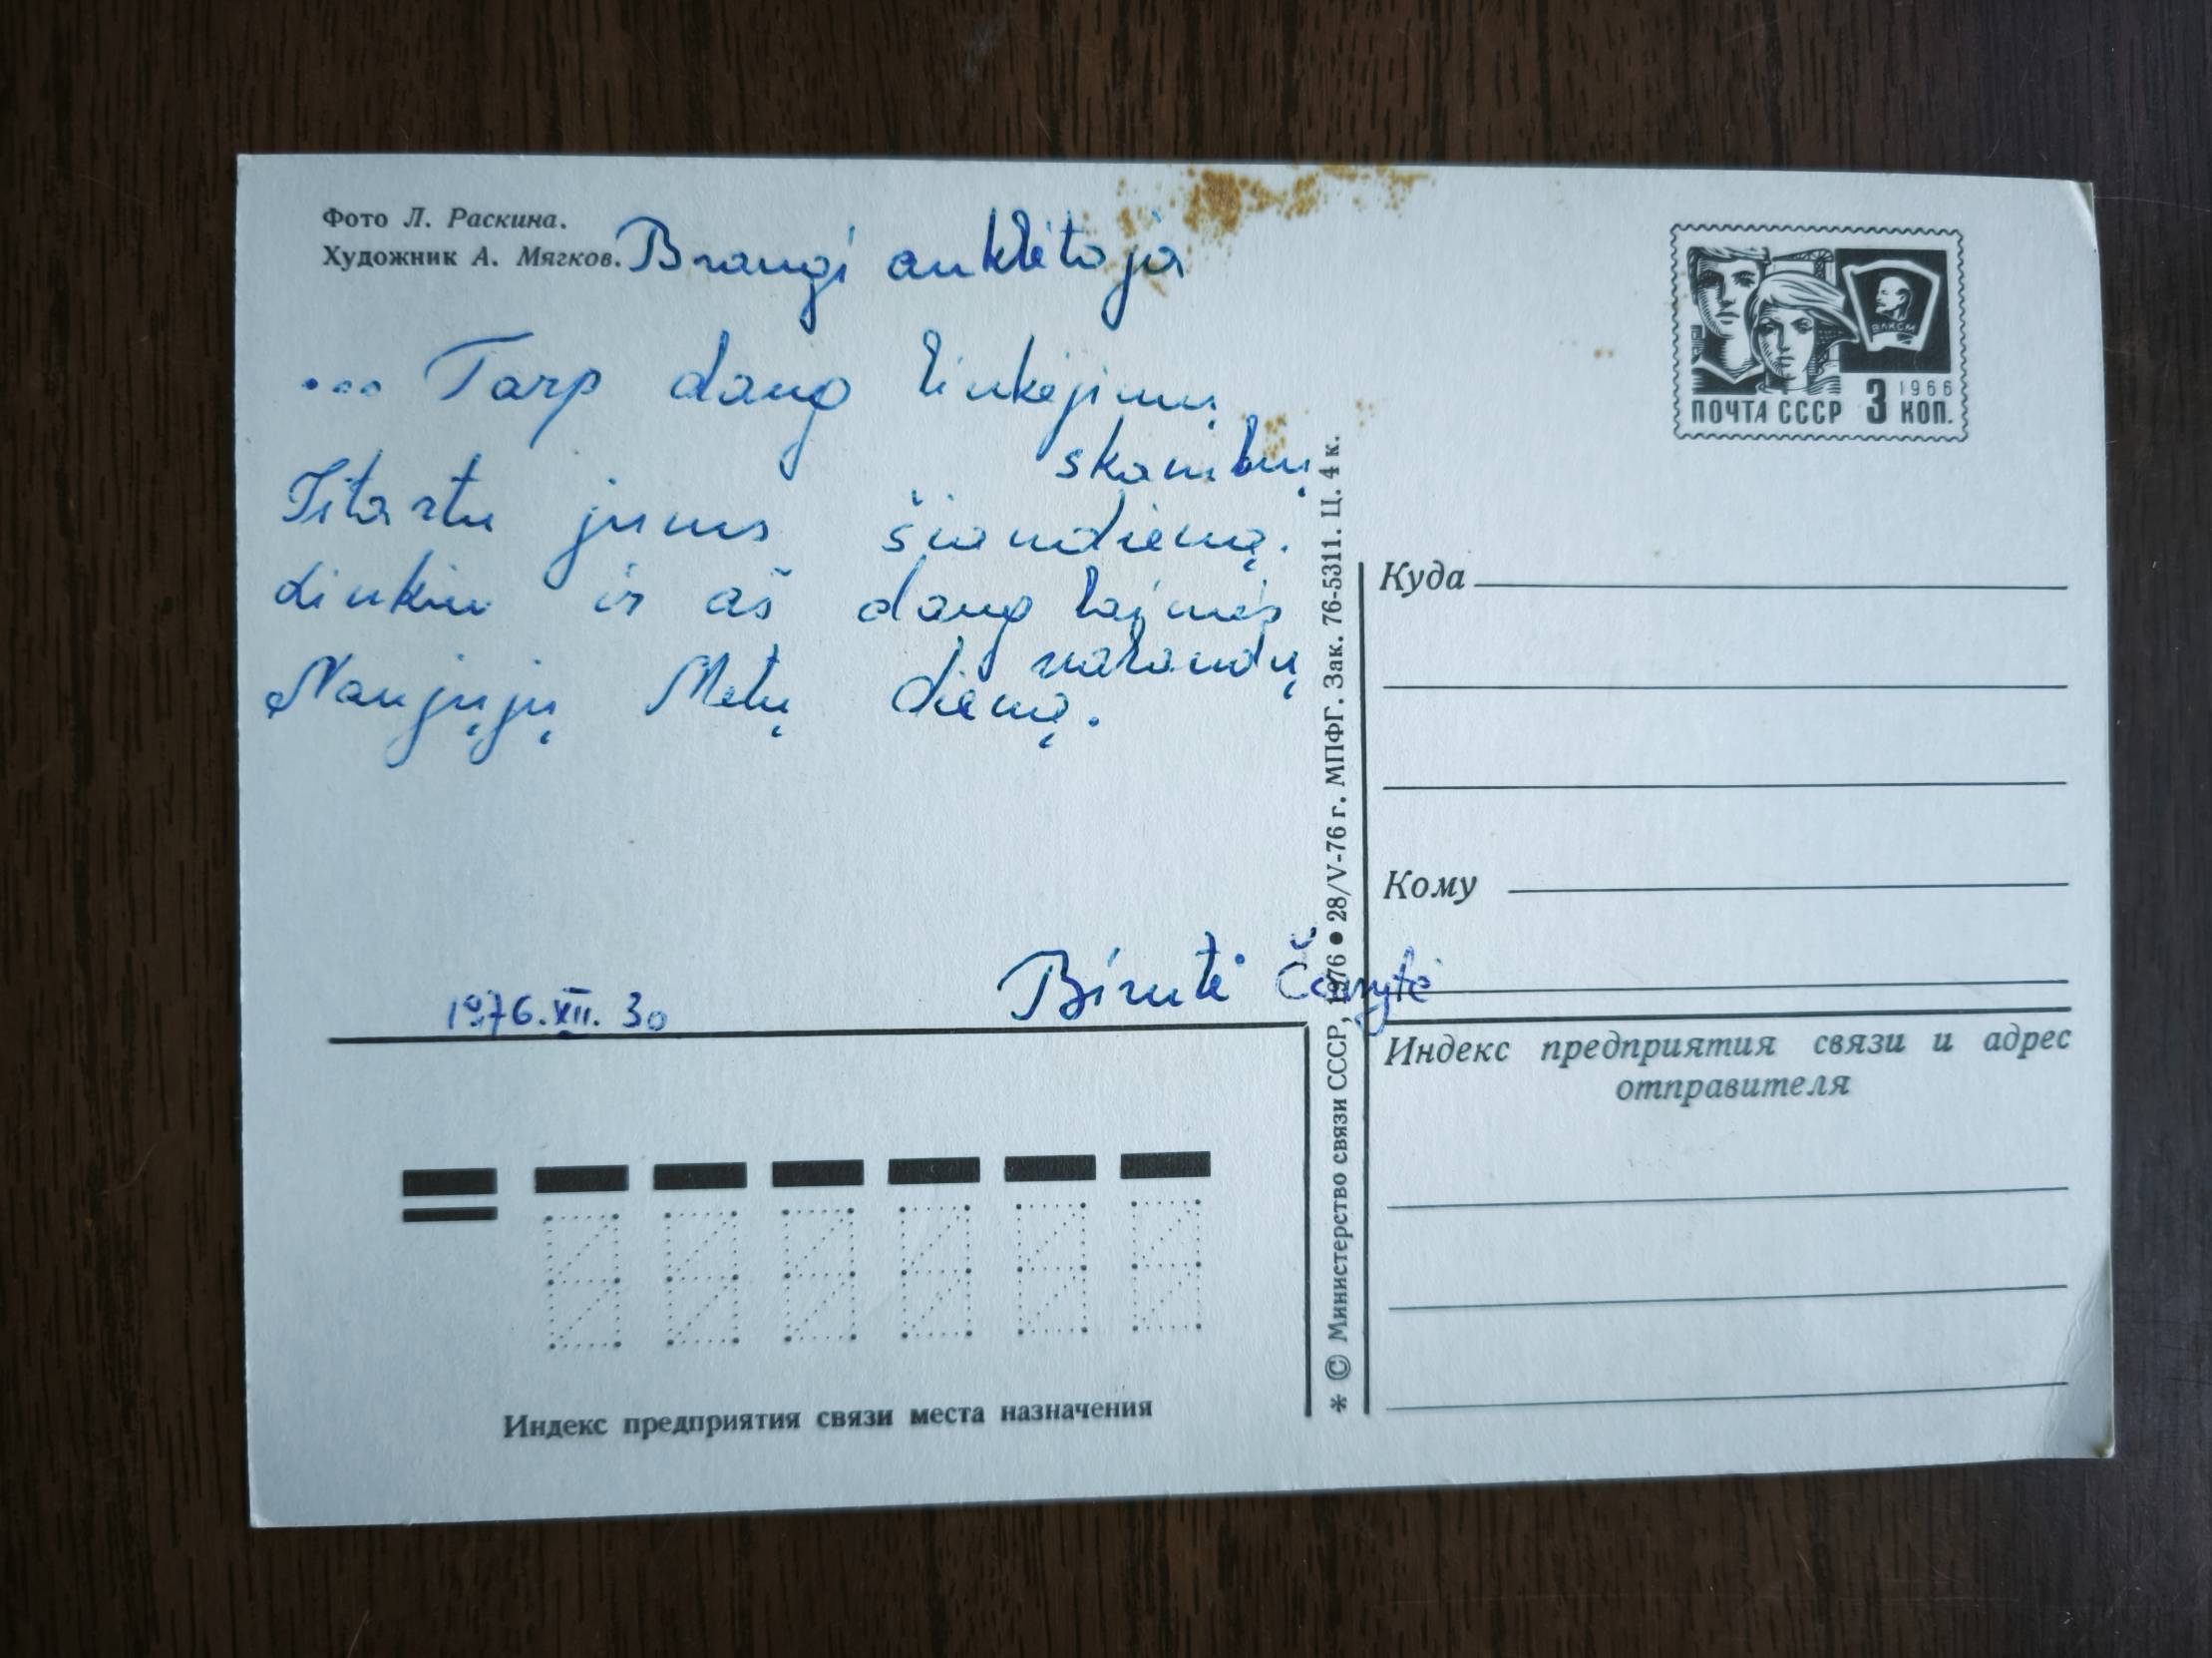 Фото Л. Раскина.
Художник А. Мягков.
Brangi auklėtoja
... Tarp daug linkėjimų
skambių
Ištartų jums šiandieną.
Linkiu ir aš daug laimės
valandų
Naujųjų Metų dieną.
Birutė
1976.XII.30
ВЛКСМ
1966
ПОЧТА СССР 3 КОП.
Куда
Кому
Индекс предприятия связи и адрес
отправителя
* © Министерство связи СССР, 1976 ● 28/V-76 г. МПФГ. Зак. 76-5311. Ц. 4 к.
Индекс предприятия связи места назначения